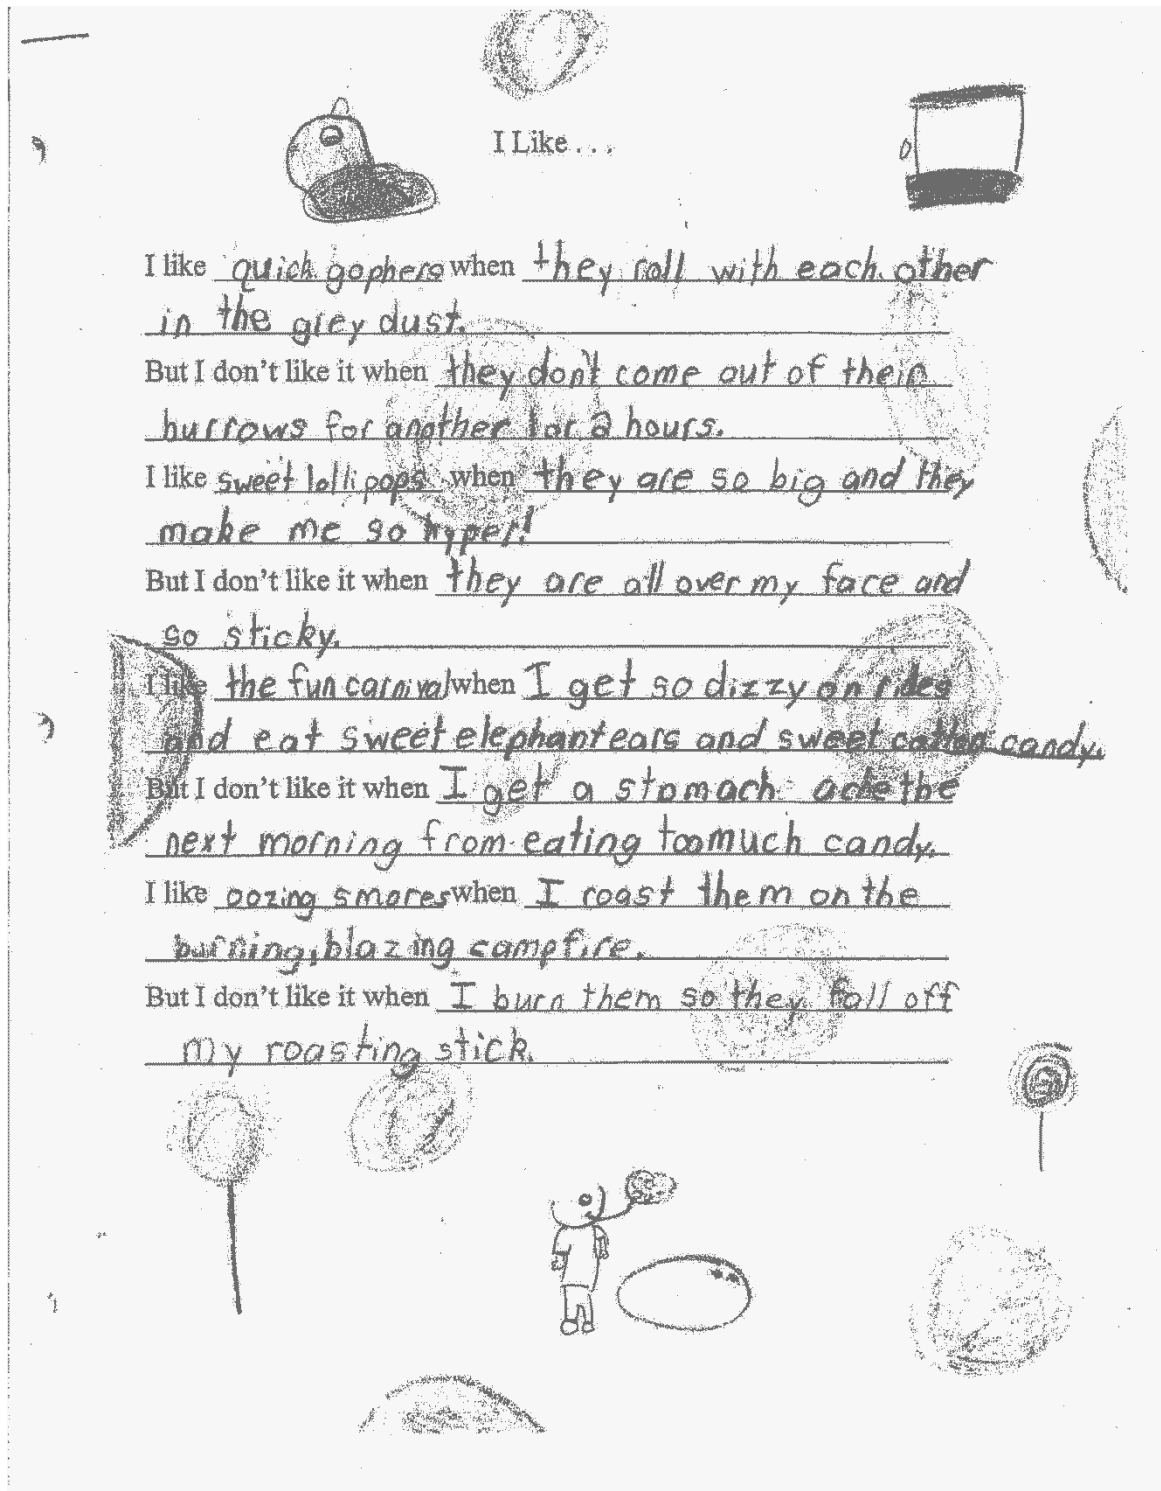 I Like . . .
I like quick gophers when they roll with each other
in the grey dust.
But I don't like it when they don't come out of their
burrows for another 1 or 2 hours.
I like sweet lollipops when they are so big and they
make me so hyper!
But I don't like it when they are all over my face and
so sticky.
I like the fun carnival when I get so dizzy on rides
and eat sweet elephant ears and sweet cotton candy.
But I don't like it when I get a stomach ache the
next morning from eating too much candy.
I like oozing smores when I roast them on the
burning, blazing campfire.
But I don't like it when I burn them so they fall off
my roasting stick.